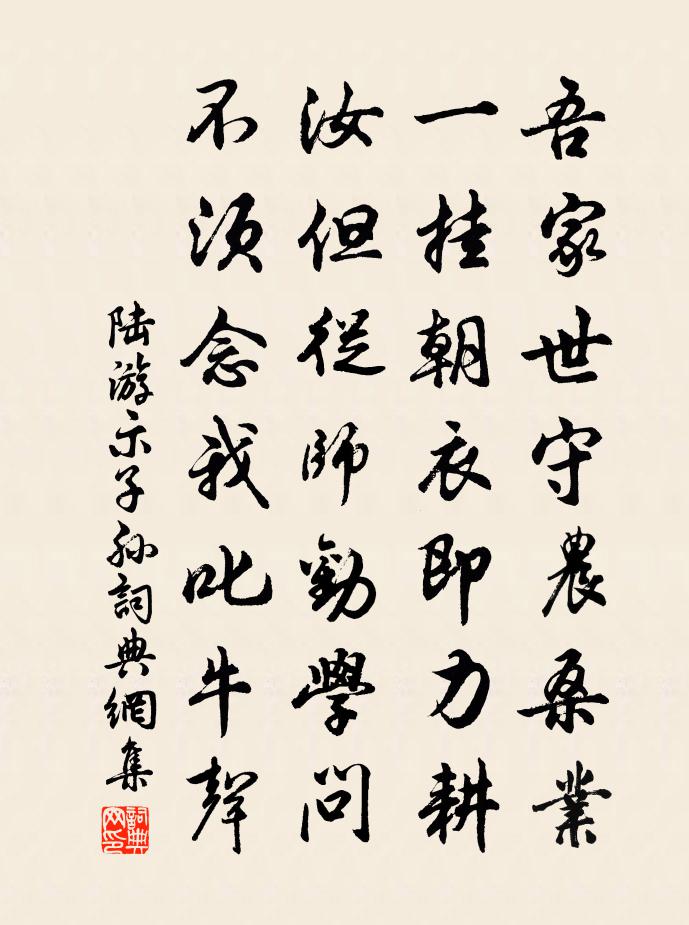 吾家世守農桑業
一挂朝衣即力耕
汝但從師勤學問
不須念我叱牛聲
陆游示子孙詞典網集
詞典网印